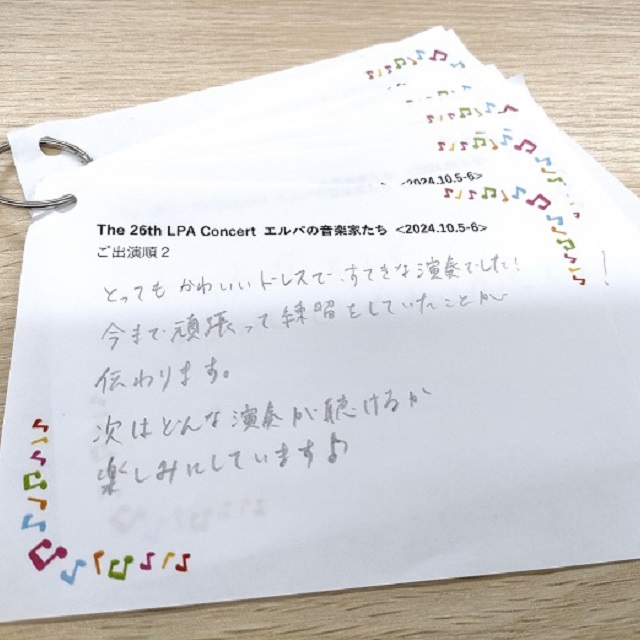 <2024.10.5-6>
The 26th LPA Concert エルバの音楽家たち <2024.10.5-6>
ご出演順２
とってもかわいいドレスで、すてきな演奏でした!
今まで頑張って練習をしていたことが
伝わります。
次はどんな演奏が聴けるか
楽しみにしています♪